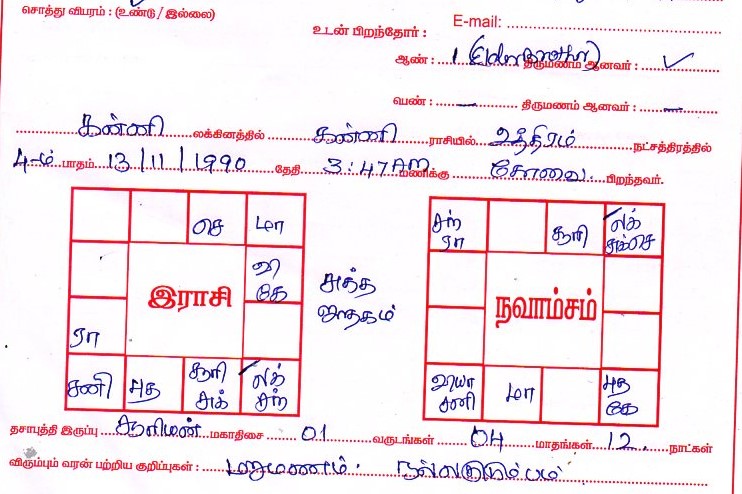 சொத்து விபரம் : (உண்டு / இல்லை)
E-mail:
உடன் பிறந்தோர் :
ஆண் : 1 (Elder Brother) திருமணம் ஆனவர் : ✓
பெண் : — திருமணம் ஆனவர் : —
கன்னி லக்கினத்தில் கன்னி ராசியில் உத்திரம் நட்சத்திரத்தில்
4-ம் பாதம் 13/11/1990 தேதி 3:47 AM மணிக்கு கோவை பிறந்தவர்.
செ மா
வி
கே
இராசி
ரா
சனி புத சூரி சுக் லக் சந்
சுத்த
ஜாதகம்
சந் ரா சூரி லக் சுக்செ
நவாம்சம்
வியா சனி மா புத கே
தசாபுத்தி இருப்பு சூரியன் மகாதிசை 01 வருடங்கள் 04 மாதங்கள் 12 நாட்கள்
விரும்பும் வரன் பற்றிய குறிப்புகள் : மறுமணம். நல்ல குடும்பம்